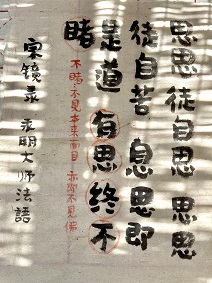 思思徒自思思思
徒自苦 息思即
是道 有思终不
睹
不睹 不见本来面目 亦即不见佛
宗镜录 永明大师法語